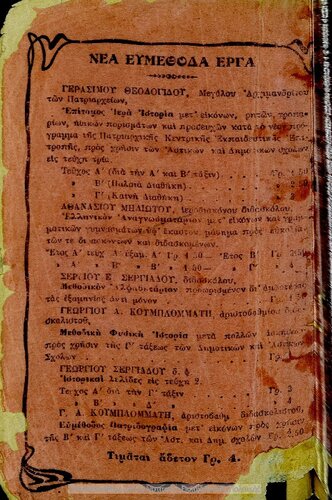 ΝΕΑ ΕΥΜΕΘΟΔΑ ΕΡΓΑ
ΓΕΡΑΣΙΜΟΥ ΘΕΟΛΟΓΙΔΟΥ, Μεγάλου Ἀρχιμανδρίτου
τῶν Πατριαρχείων,
Ἐπίτομος Ἱερὰ Ἱστορία μετ' εἰκόνων, ρητῶν, τροπα-
ρίων, ἠθικῶν πορισμάτων καὶ προσευχῶν κατὰ τὸ νέον πρό-
γραμμα τῆς Πατριαρχικῆς Κεντρικῆς Ἐκπαιδευτικῆς Ἐπι-
τροπῆς, πρὸς χρῆσιν τῶν Ἀστικῶν καὶ Δημοτικῶν σχολῶν
εἰς τεύχη τρία.
Τεῦχος Α΄ (διὰ τὴν Α΄ καὶ Β΄ τάξιν) Γρ.
» Β΄ (Παλαιὰ Διαθήκη) » 2.50
» Γ΄ (Καινὴ Διαθήκη) »
ΑΘΑΝΑΣΙΟΥ ΜΗΛΙΩΤΟΥ, ἱεροδιακόνου διδασκάλου.
Ἑλληνικὸν Ἀναγνωσματάριον μετ' εἰκόνων καὶ γραμ-
ματικῶν γυμνασμάτων ἐφ' ἕκαστον μάθημα πρὸς εὐκολίαν
τῶν τε διδασκόντων καὶ διδασκομένων.
Ἔτος Α΄ τεύχ. Α΄ ἑξαμ. Α΄ Γρ. 1.50 — Ἔτος Β΄ Γρ.
» Α΄ » Β΄ » Β΄ » 1.50 —
ΣΕΡΓΙΟΥ Ε. ΣΕΡΓΙΑΔΟΥ, διδασκάλου,
Μεθοδικὸν Ἀλφαβητάριον προωρισμένον δι' ἀμφοτέρας
τὰς ἑξαμηνίας ἀντὶ μόνον Γρ.
ΓΕΩΡΓΙΟΥ Α. ΚΟΥΜΠΛΟΜΜΑΤΗ, ἀριστοβαθμίου διδα-
σκαλιστοῦ,
Μεθοδικὴ Φυσικὴ Ἱστορία μετὰ πολλῶν
πρὸς χρῆσιν τῆς Γ΄ τάξεως τῶν Δημοτικῶν καὶ Ἀστικῶν
Σχολῶν Γρ.
ΓΕΩΡΓΙΟΥ ΣΕΡΓΙΑΔΟΥ δ. φ.
Ἱστορικαὶ Σελίδες εἰς τεύχη 2.
Τεῦχος Α΄ διὰ τὴν Γ΄ τάξιν Γρ. 3
» Β΄ » » Δ΄ » » 4
Γ. Α. ΚΟΥΜΠΛΟΜΜΑΤΗ, ἀριστοβαθμ. διδασκαλιστοῦ,
Εὐμέθοδος Πατριδογραφία μετ' εἰκόνων πρὸς χρῆσιν
τῆς Β΄ καὶ Γ΄ τάξεως τῶν Ἀστ. καὶ Δημ. σχολῶν Γρ. 2.50
Τιμᾶται ἄδετον Γρ. 4.